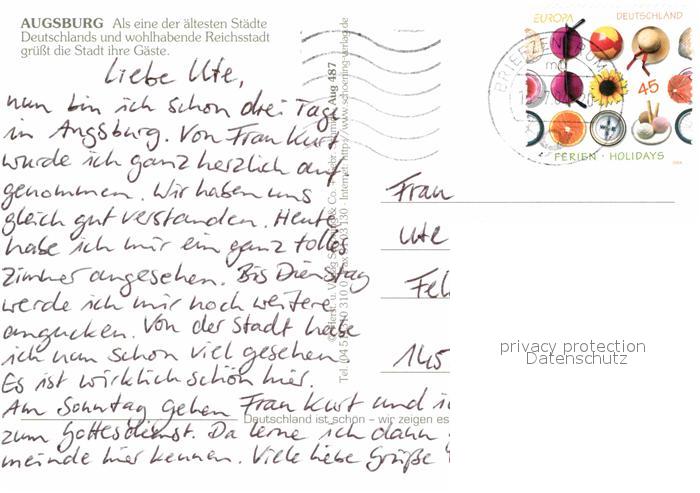 AUGSBURG Als eine der ältesten Städte
Deutschlands und wohlhabende Reichsstadt
grüßt die Stadt ihre Gäste.
Liebe Ute,
nun bin ich schon drei Tage
in Augsburg. Von Frau Kurt
wurde ich ganz herzlich auf
genommen. Wir haben uns
gleich gut verstanden. Heute
habe ich mir ein ganz tolles
Zimmer angesehen. Bis Dienstag
werde ich mir noch weitere
angucken. Von der Stadt habe
ich nun schon viel gesehen
Es ist wirklich schön hier.
Am Sonntag gehen Frau Kurt und
zum Gottesdienst. Da lerne ich dann
meinde hier kennen. Viele liebe Grüße
Deutschland ist schön – wir zeigen es
Aug 487
EUROPA DEUTSCHLAND
45
FERIEN · HOLIDAYS
BRIEFZENTRUM
Frau
Ute
Feh
145
privacy protection
Datenschutz